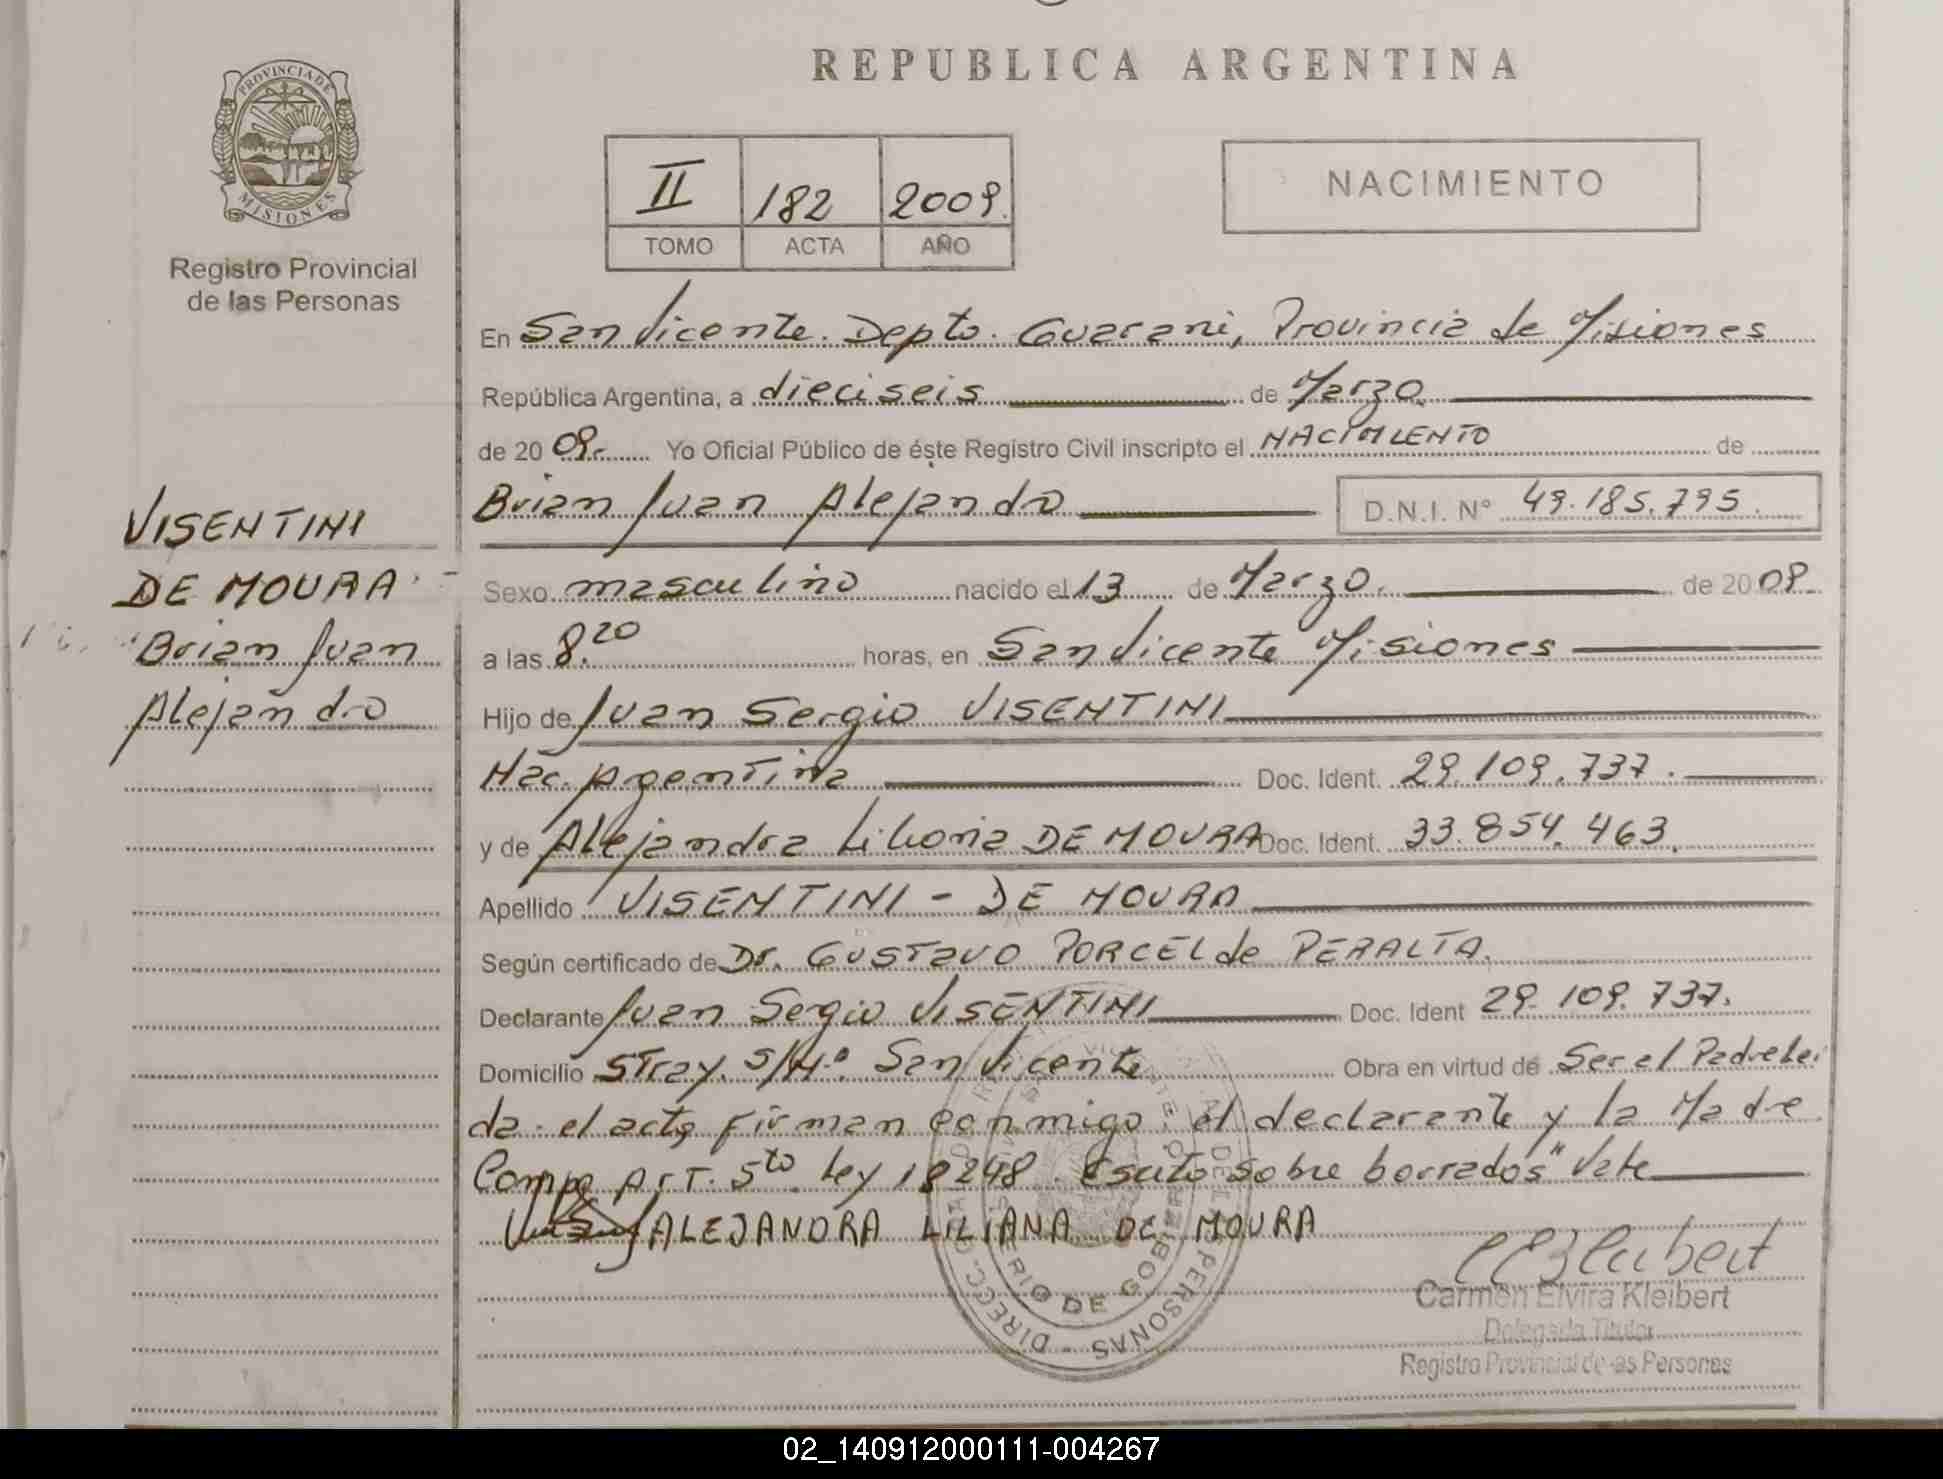 PROVINCIA DE
MISIONES
Registro Provincial
de las Personas
VISENTINI
DE MOURA
Brian Juan
Alejandro
REPUBLICA ARGENTINA
II 182 2009.
TOMO ACTA AÑO
NACIMIENTO
En San Vicente. Depto. Guarani, Provincia de Misiones
República Argentina, a dieciseis de Marzo
de 2009. Yo Oficial Público de éste Registro Civil inscripto el NACIMIENTO de
Brian Juan Alejandro D.N.I. Nº 49.185.795.
Sexo masculino nacido el 13 de Marzo. de 2009.
a las 8.20 horas, en San Vicente Misiones
Hijo de Juan Sergio VISENTINI
Nac. Argentina Doc. Ident. 29.109.737.
y de Alejandra Liliana DE MOURA Doc. Ident. 33.854.463.
Apellido VISENTINI - DE MOURA
Según certificado de Dr. GUSTAVO PORCEL de PERALTA.
Declarante Juan Sergio VISENTINI Doc. Ident 29.109.737.
Domicilio STray. S/Nº San Vicente Obra en virtud de Ser el Padre Lei
da el acta Firman conmigo el declarante y la Madre
Comp Art. 5to Ley 18248. Escrito sobre borrados" Vale
ALEJANDRA LILIANA DE MOURA
DIRECC. PERSONAS
DE GOBIER
Carmen Elvira Kleibert
Delegada Titular
Registro Provincial de las Personas
02_140912000111-004267